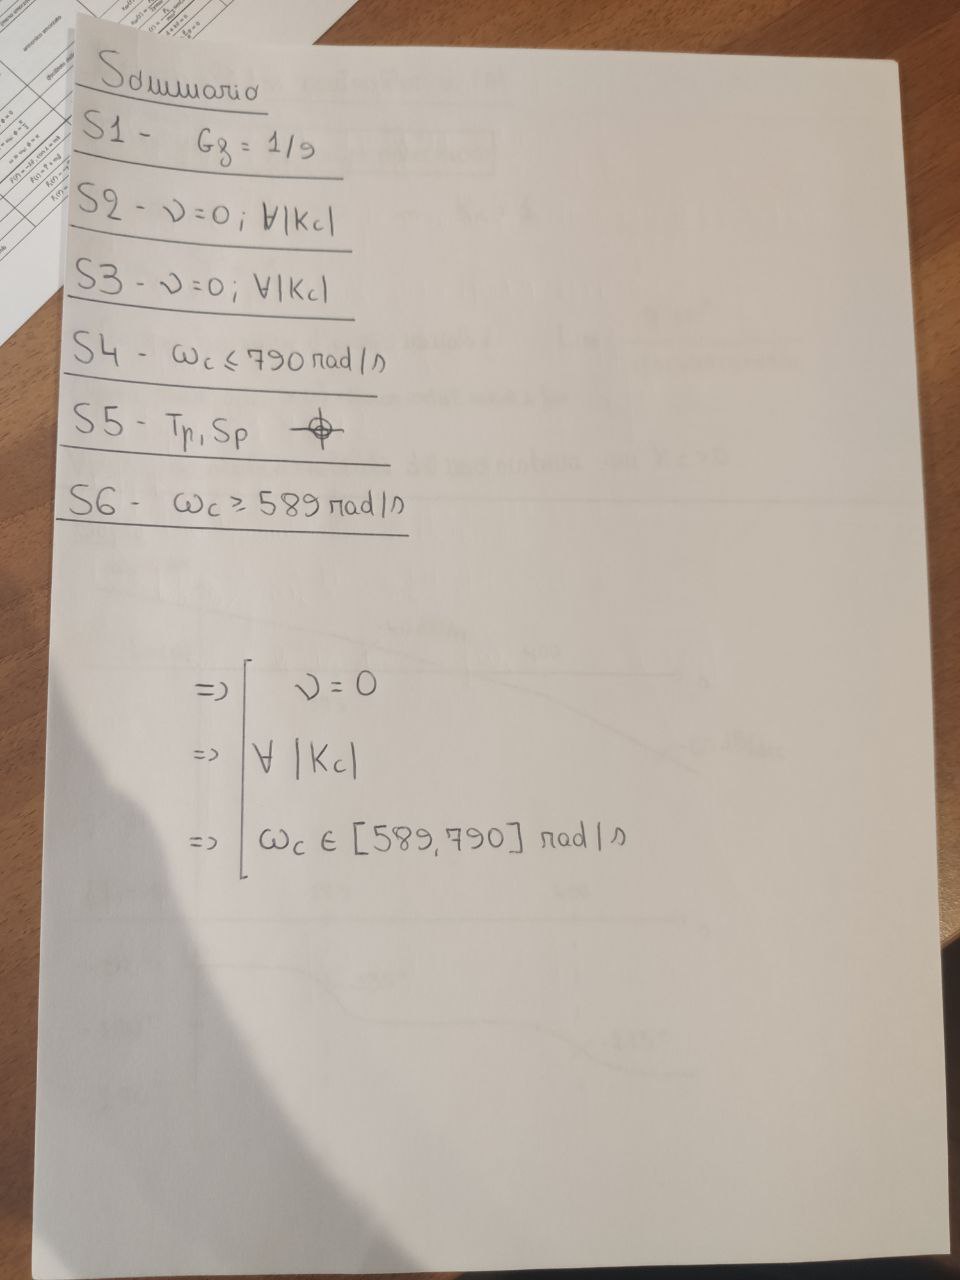 Sommario
S1 - Gf = 1/9
S2 - ν = 0 ; ∀|Kc|
S3 - ν = 0 ; ∀|Kc|
S4 - ωc ≤ 790 rad/s
S5 - Tp, Sp
S6 - ωc ≥ 589 rad/s
=> ν = 0
=> ∀ |Kc|
=> ωc ∈ [589, 790] rad/s